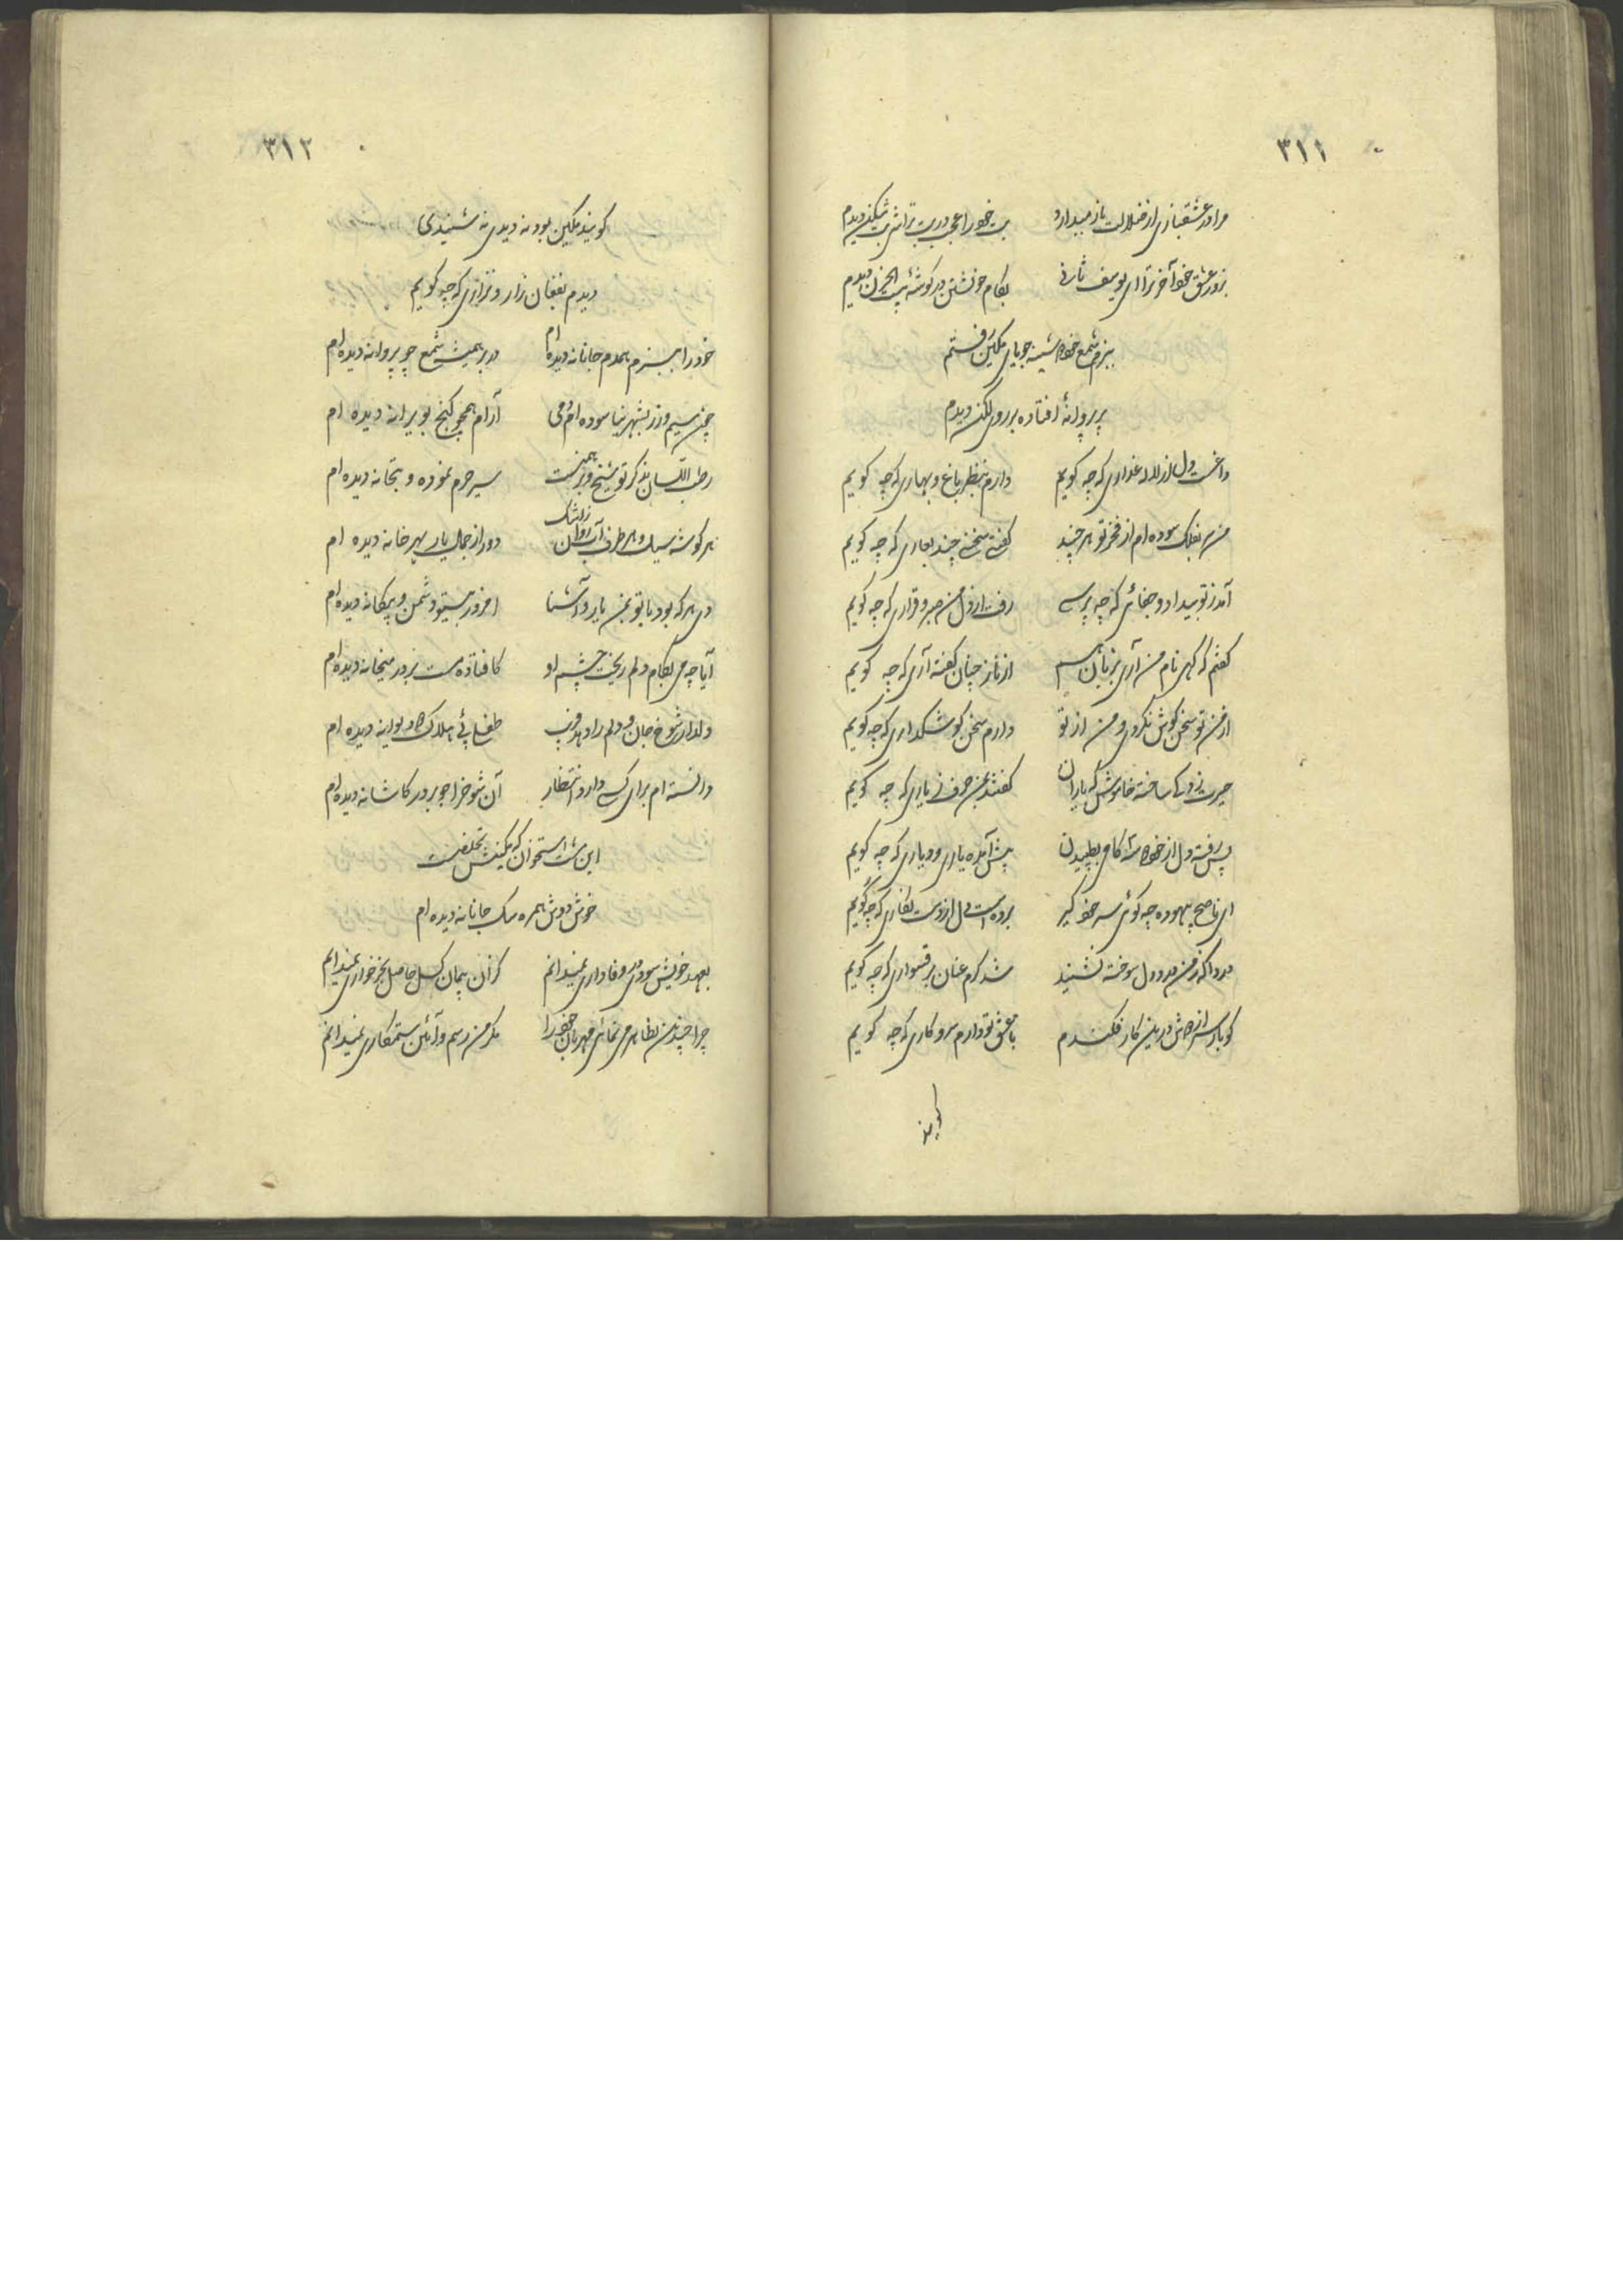 ۳۱۱
مرا در عشقبازی از ضلالت باز میدارد بت خود را عجب در بت تراشی بت شکن دیدم
بزور عشق خود آخر ترا ای یوسف ثانی بکام خویشتن در گوشهٔ بیت الحزن دیدم
ببزم شمع خود شب جویای مکین رفتم
پر پروانهٔ افتاده بر روی لگن دیدم
داغست دل از لاله عذاری که چه گویم دارم بنظر باغ و بهاری که چه گویم
من سر بفلک سوده ام از فخر تو هر چند گفتی سخنی چند بعاری که چه گویم
آمد ز تو بیداد و جفائی که چه پرسی رفت از دل من صبر و قراری که چه گویم
گفتم که گهی نام من آری بزبان از ناز چنان گفته آری که چه گویم
از من تو سخن گوش نکردی و من از تو دارم سخن گوشگذاری که چه گویم
حیرت زده ساخته خاموش که یاران گفتند بمن حرف ز یاری که چه گویم
پس رفته دل از خود کامی بطپیدن پیش آمده یاری و دیاری که چه گویم
ای ناصح بیهوده چه گوئی سر خود گیر برده است دل از دست نگاری که چه گویم
دردا که ز من درد دل سوخته نشنید شد گرم عنان برق سواری که چه گویم
گو باد سر از دوش درین کار فکندم با عشق تو دارم سر و کاری که چه گویم
گویند
۳۱۲
گویند مکین بود نه دیدی نه شنیدی
دیدم بفغان زار و نزاری که چه گویم
خود را ببزم همدم جانانه دیده ام در پیش شمع چو پروانه دیده ام
چون سیم و زر بشهر نیاسوده ام دمی آرام همچو گنج بویرانه دیده ام
رطب اللسان بذکر تو شیخ و برهمنست سیر حرم نموده و بتخانه دیده ام
هر گوشه سیل و هر طرف آب روان ز اشک دور از جمال یار بهر خانه دیده ام
دی هر که بود با تو بمن یار و آشنا امروز بیتو دشمن و بیگانه دیده ام
آیا چه می بکام دلم ریخت چشم او کافتاده مست بر در میخانه دیده ام
دلدار شوخ جان و دلم را دهد فریب طفلی پی هلاک دو دیوانه دیده ام
دانسته ام برای کسی دارد انتظار آن شوخ را چو بر در کاشانه دیده ام
این مشت استخوان که مکینش تخلصست
خوش دوش همره سگ جانانه دیده ام
بعهد خویش سودی در وفاداری نمیدانم کز آن پیمان گسل حاصل بجز خواری نمیدانم
چرا چندین بظاهر می نمائی مهربان خود را مگر من رسم و آئین ستمکاری نمیدانم